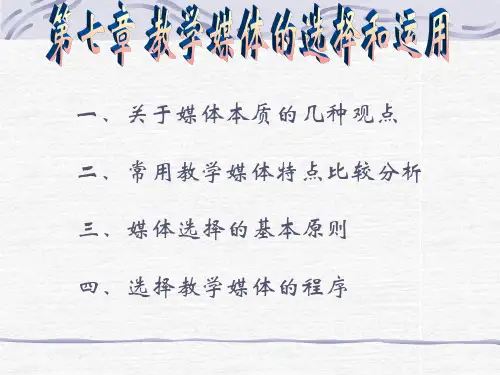 第七章 教学媒体的选择和运用
一、关于媒体本质的几种观点
二、常用教学媒体特点比较分析
三、媒体选择的基本原则
四、选择教学媒体的程序